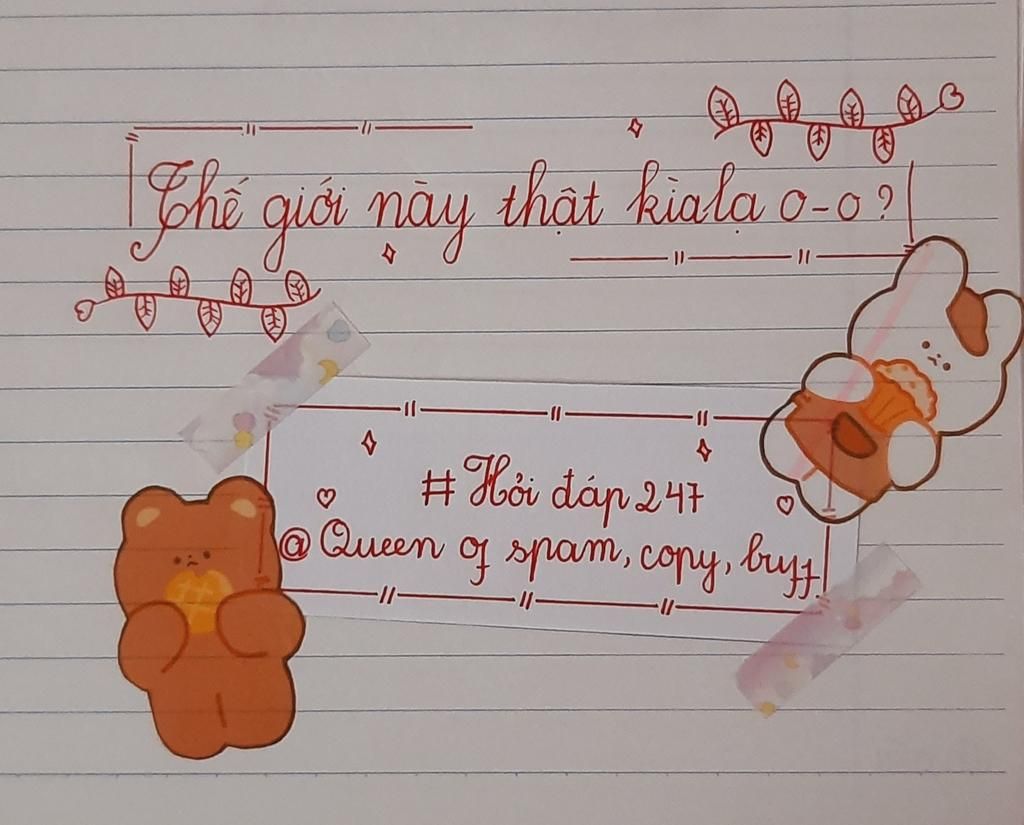 Thế giới này thật kìalạ 0-0?
# Hỏi đáp 247
@ Queen of spam, copy, buff